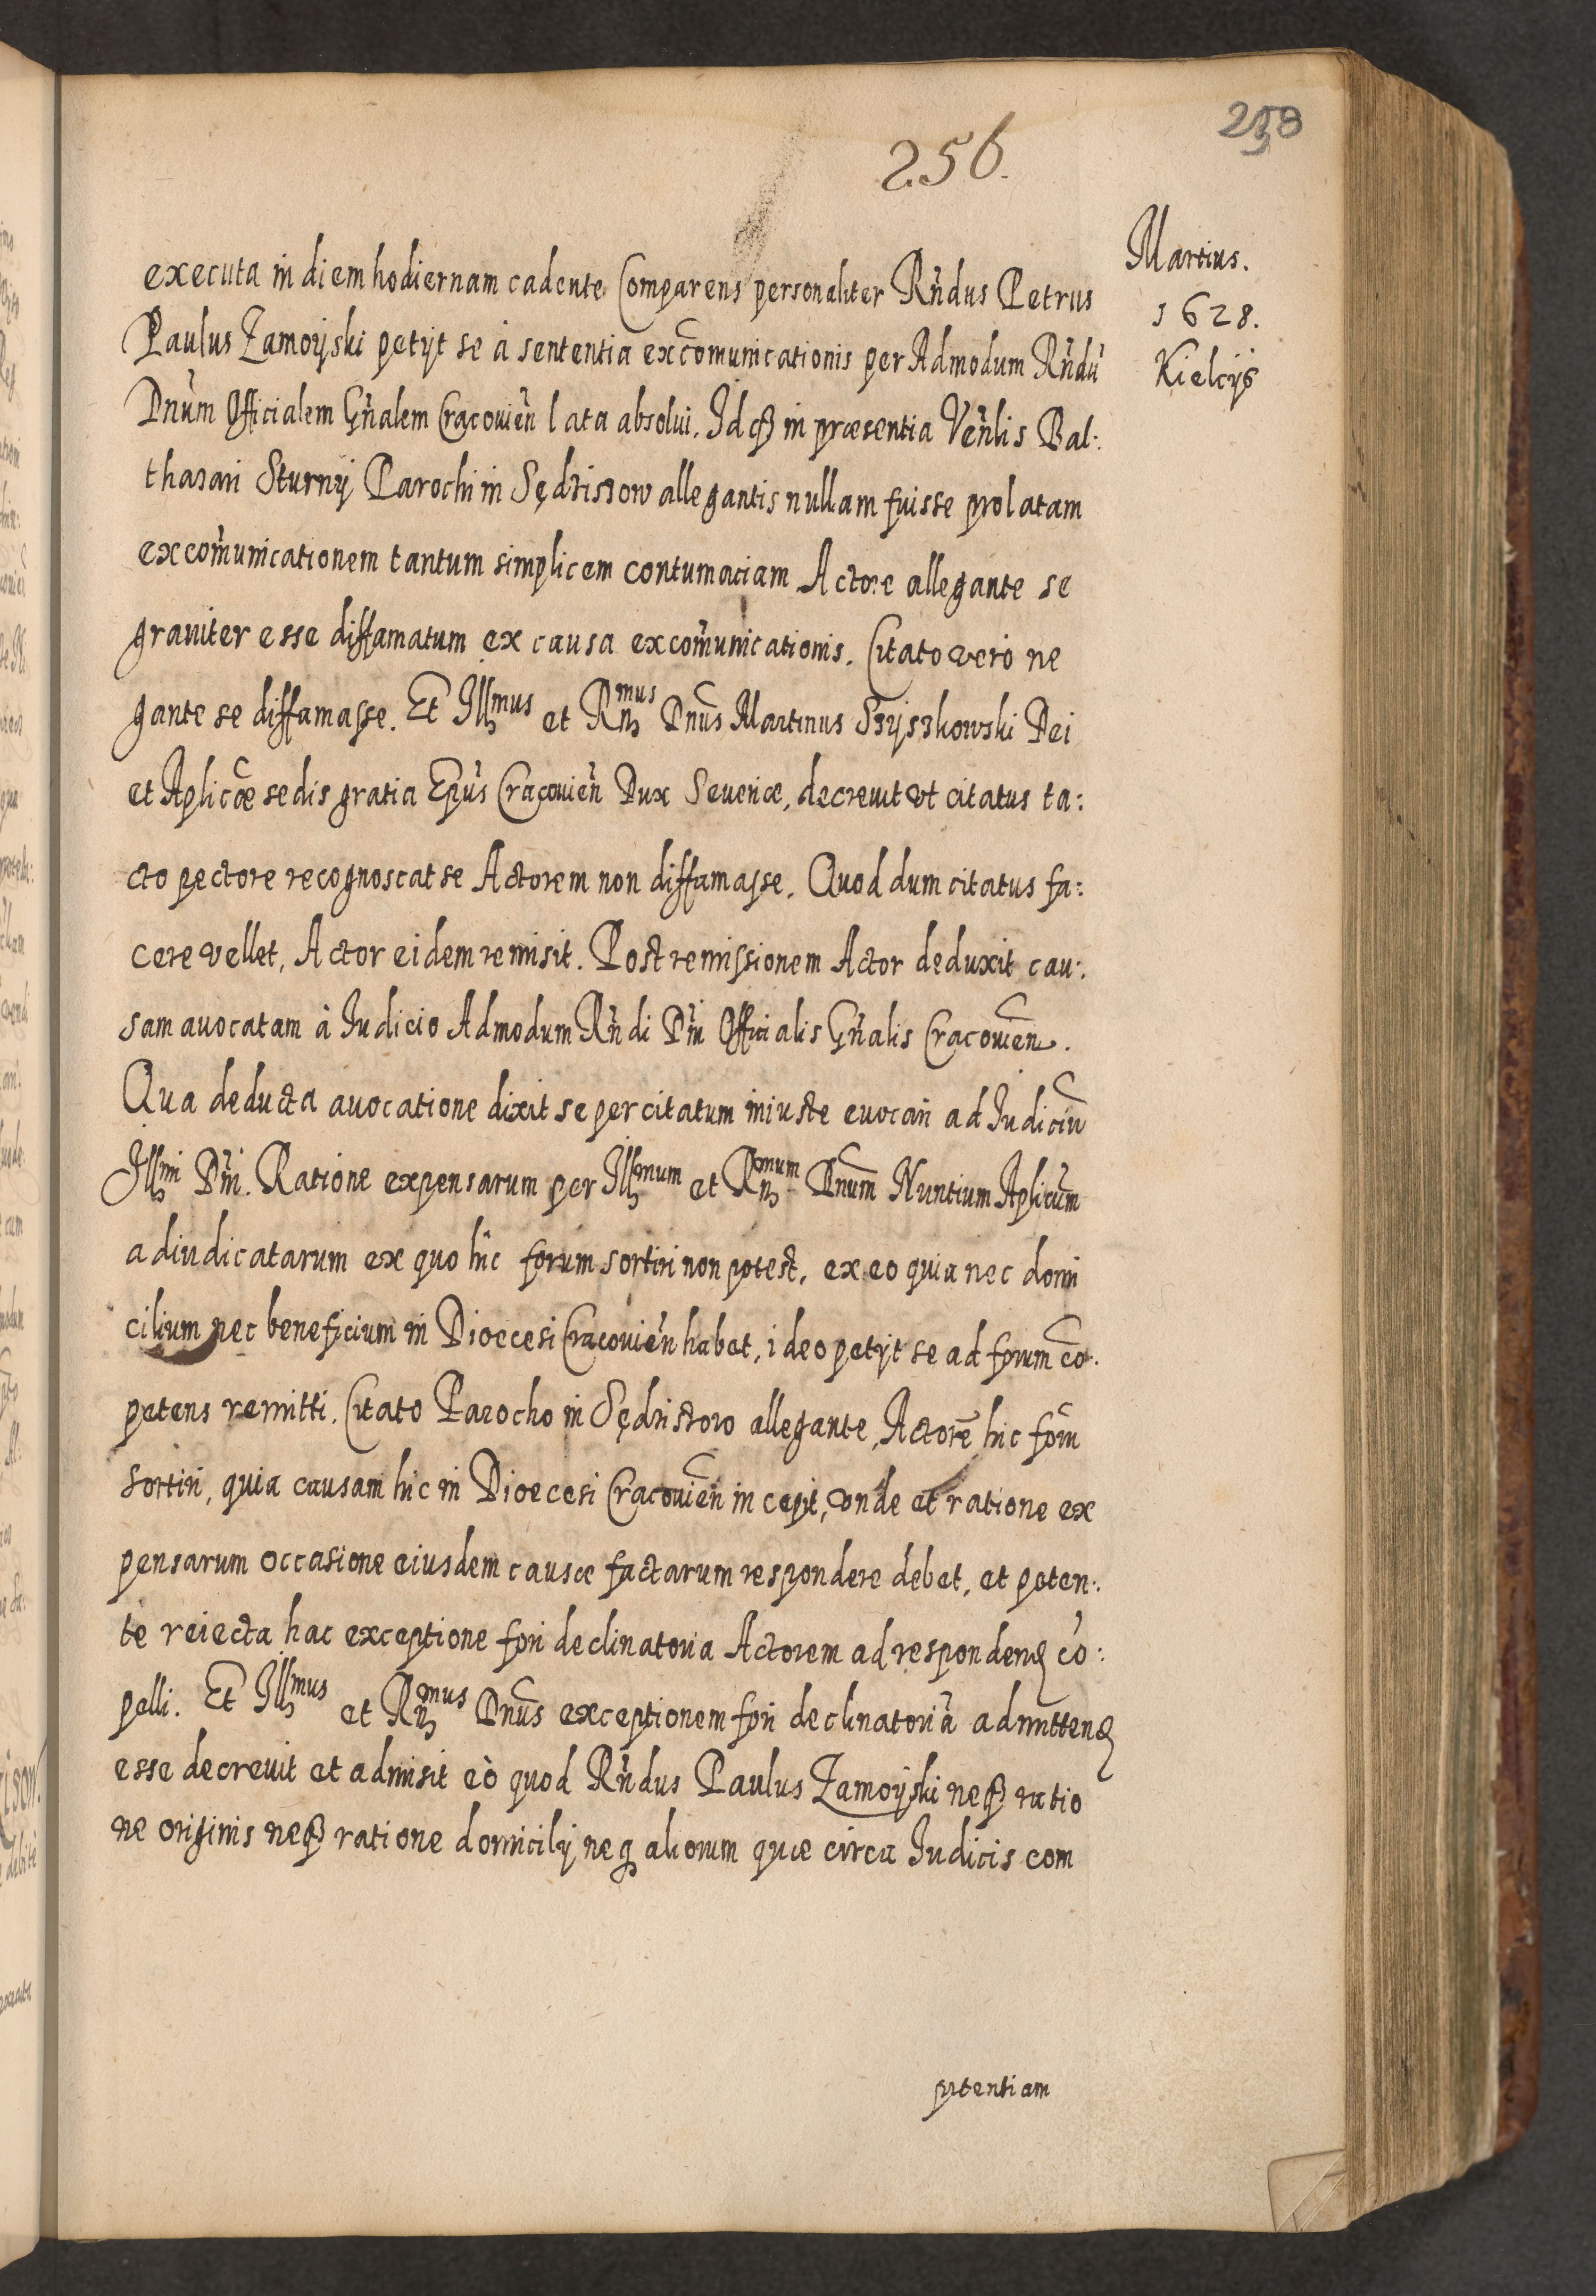 256.
258
Martius.
1628.
Kielcijs
executa in diem hodiernam cadente Comparens personaliter Rńdus Petrus
Paulus Zamoÿski petijt se à sententia excõmunicationis per Admodum Rńdũ
Dnũm Officialem Gñalem Cracouieñ lata absolui. Idqȝ in præsentia Veñlis Bal:
thasari Sturnij Parochi in Sędziszow allegantis nullam fuisse prolatam
excom̃unicationem tantum simplicem contumaciam Actore allegante se
grauiter esse diffamatum ex causa excom̃unicationis. Citato vero ne
gante se diffamasse. Et Illmus et Rnmus Dnus̃ Martinus Szyszkowski Dei
et Aplicæ̃ sedis gratia Epũs Cracouień Dux Seueriæ, decreuit vt citatus ta:
cto pectore recognoscat se Actorem non diffamasse. Quod dum citatus fa:
cere vellet, Actor eidem remisit. Post remissionem Actor deduxit cau:
sam auocatam à Iudicio Admodum Rńdi Dñi Officialis Gñalis Cracouień.
Qua deducta auocatione dixit se per citatum iniuste euocari ad Iudiciũ
Illmi Dñi. Ratione expensarum per Illmum et Rnmum Dnum̃ Nuntium Aplicũm
adiudicatarum ex quo hic forum sortiri non potest, ex eo quia nec domi
cilium nec beneficium in Dioecesi Cracouień habet, ideo petijt se ad forum cõ:
petens remitti. Citato Parocho in Sędzistow allegante, Actorẽ hic forũ
sortiri, quia causam hic in Dioecesi Cracouień incepit, vnde et ratione ex
pensarum occasione eiusdem causæ factarum respondere debet, et peten:
te reiecta hac exceptione fori declinatoria Actorem ad respondend cõ:
pelli. Et Illmus et Rnmus Dnus̃ exceptionem fori declinatoriã admittend
esse decreuit et admisit eò quod Rńdus Paulus Zamoÿski neqȝ ratio
ne originis neqȝ ratione domicilij neq aliorum quæ circa Iudicis com
ptentiam